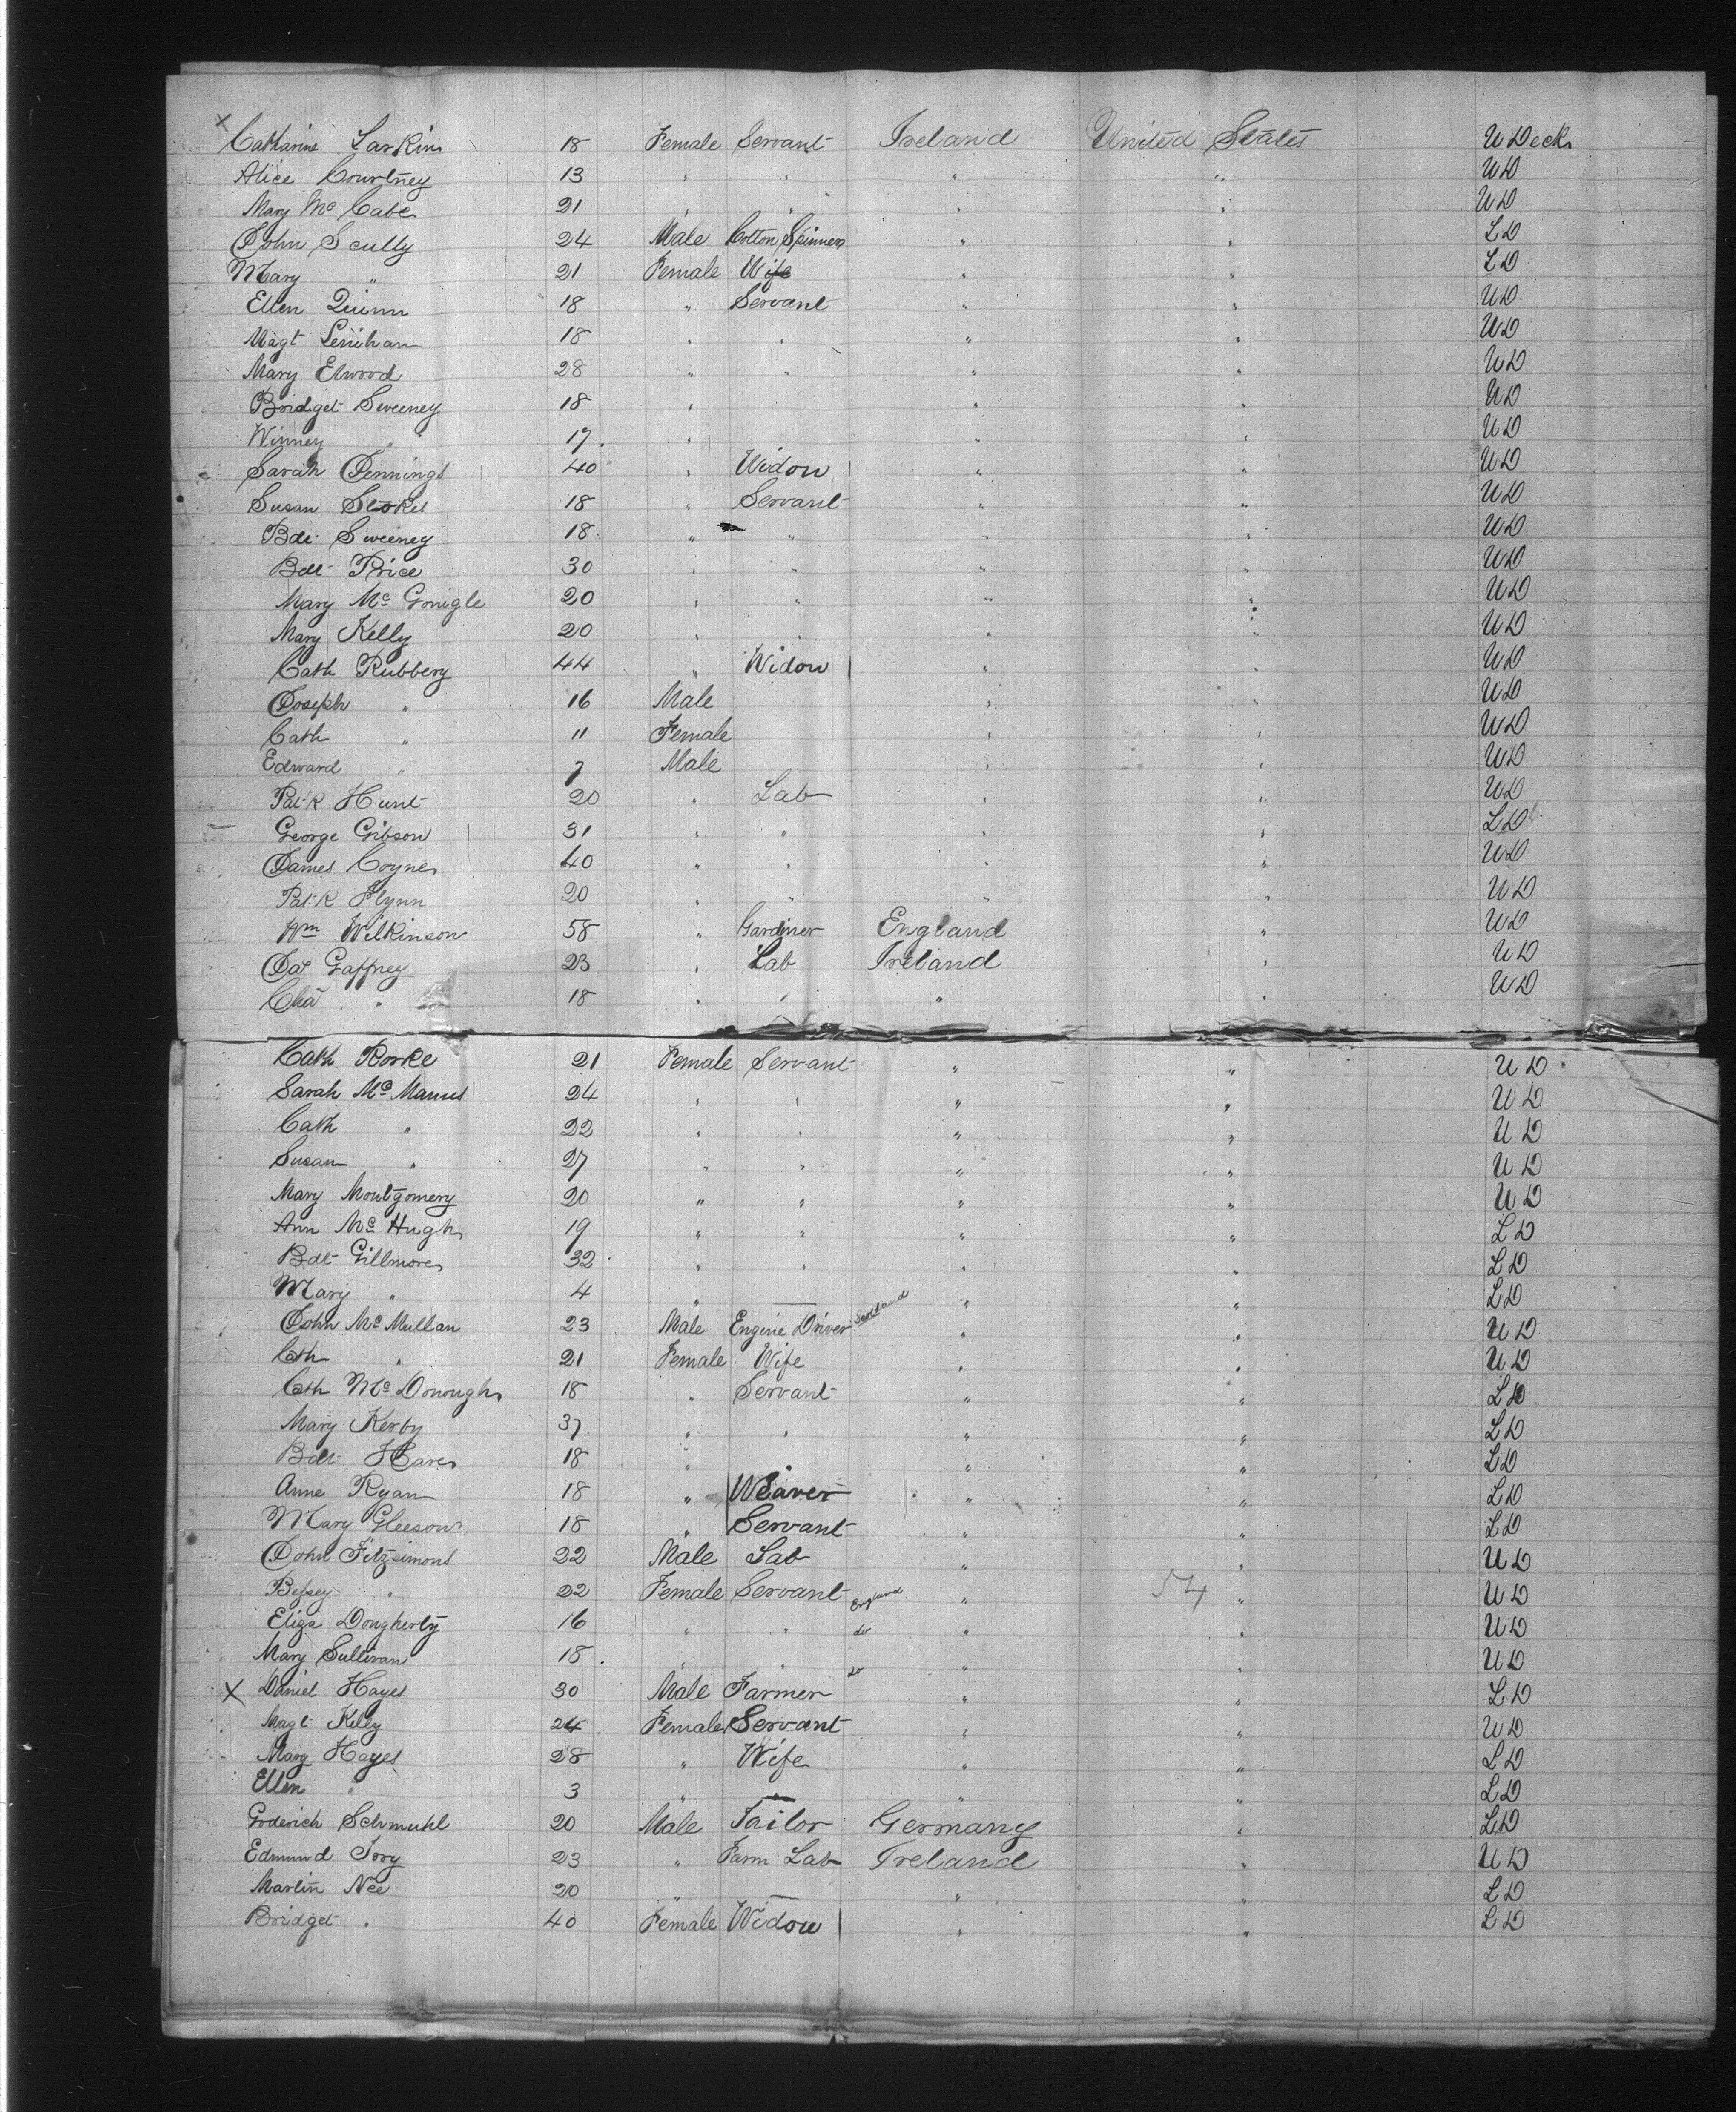 x Catharine Larkin 18 Female Servant Ireland United States U Deck
Alice Courtney 13 " " " " U D
Mary Mc Cabe 21 " " " " U D
John Scully 24 Male Cotton Spinner " " L D
Mary " 21 Female Wife " " L D
Ellen Quinn 18 " Servant " " U D
Magt Lenihan 18 " " " " U D
Mary Elwood 28 " " " " U D
Bridget Sweeney 18 " " " U D
Winney " 17 " " " U D
Sarah Jennings 40 " Widow " " U D
Susan Stokes 18 " Servant " " U D
Bdt Sweeney 18 " " " " U D
Bdt Price 30 " " " " U D
Mary Mc Gonigle 20 " " " " U D
Mary Kelly 20 " " " " U D
Cath Rubbery 44 " Widow " " U D
Joseph " 16 Male " " U D
Cath " 11 Female " " U D
Edward " 7 Male " " U D
Patk Hunt 20 " Lab " " U D
George Gibson 31 " " " " L D
James Coyne 40 " " " " U D
Patk Flynn 20 " " " " U D
Wm Wilkinson 58 " Gardiner England " U D
Jas Gaffney 23 " Lab Ireland " U D
Cha " 18 " " " " U D
Cath Rorke 21 Female Servant " " U D
Sarah Mc Manus 24 " " " " U D
Cath " 22 " " " " U D
Susan " 27 " " " " U D
Mary Montgomery 20 " " " " U D
Ann Mc Hugh 19 " " " " L D
Bdt Gillmore 32 " " " " L D
Mary " 4 " — " " L D
John Mc Mullan 23 Male Engine Driver Scotland " " U D
Cth " 21 Female Wife " " U D
Cth Mc Donough 18 " Servant " " L D
Mary Kerby 37 " " " " L D
Bdt Hare 18 " " " " L D
Anne Ryan 18 " Weaver " " L D
Mary Gleeson 18 " Servant " " L D
John Fitzsimons 22 Male Lab " " U D
Bessey " 22 Female Servant England " 54 " U D
Eliza Dougherty 16 " " do " " U D
Mary Sullivan 18 " " do " " U D
x Daniel Hayes 30 Male Farmer " " L D
Magt Kiley 24 Female Servant " " U D
Mary Hayes 28 " Wife " " L D
Ellen " 3 " — " " L D
Goderich Schmuhl 20 Male Tailor Germany " L D
Edmund Ivory 23 " Farm Lab Ireland " U D
Martin Nee 20 " — " " L D
Bridget " 40 Female Widow " " L D